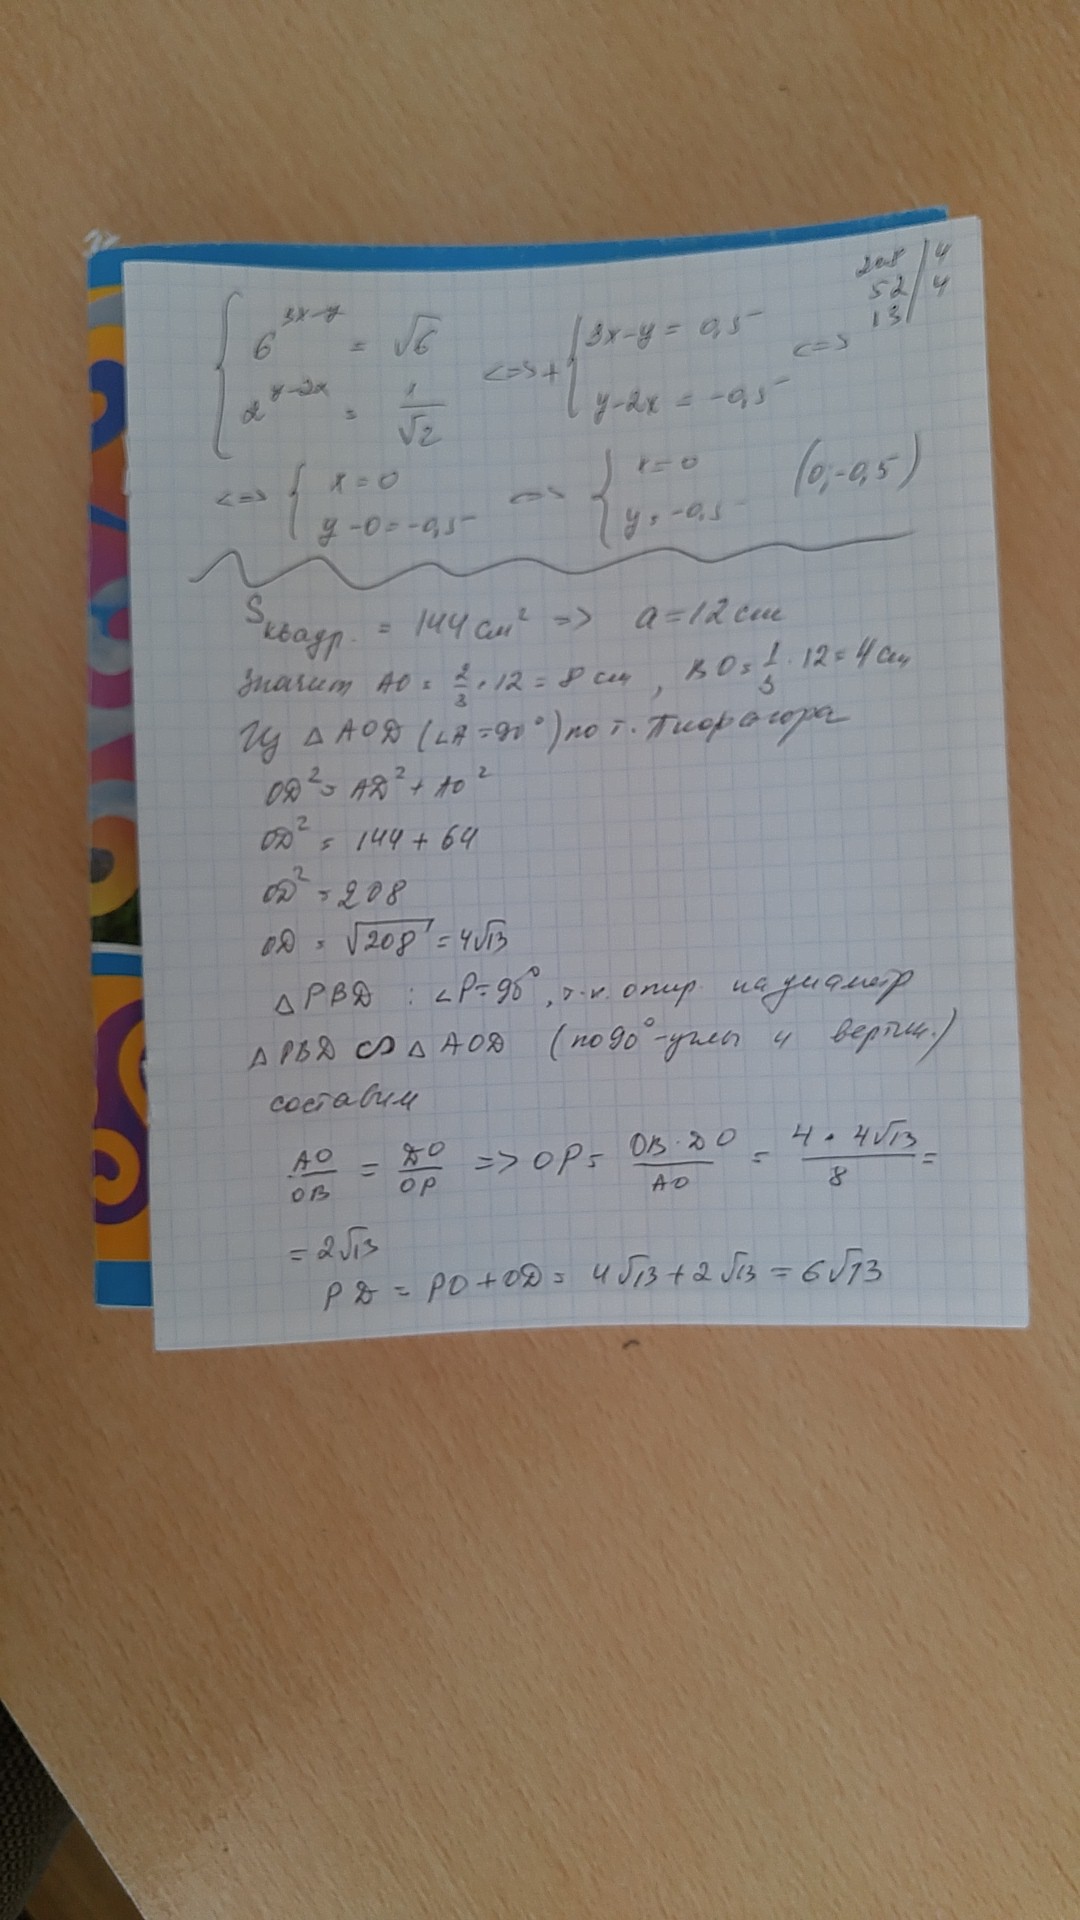 208 | 4
52 | 4
13 |
{ 6^{3x-y} = √6 <=> + { 3x-y = 0,5 <=>
2^{y-2x} = 1/√2 y-2x = -0,5
<=> { x = 0 <=> { x = 0 (0; -0,5)
y - 0 = -0,5 y = -0,5
S квадр. = 144 см² => a = 12 см
Значит AO = 2/3 · 12 = 8 см, BO = 1/3 · 12 = 4 см
Из △ AOD (∠A = 90°) по т. Пифагора
OD² = AD² + AO²
OD² = 144 + 64
OD² = 208
OD = √208 = 4√13
△ PBD : ∠P = 90°, т.к. опир. на диаметр
△ PBD ∽ △ AOD (по 90°-углы и вертик.)
составим
AO/OB = DO/OP => OP = OB · DO/AO = 4 · 4√13/8 =
= 2√13
PD = PO + OD = 4√13 + 2√13 = 6√13